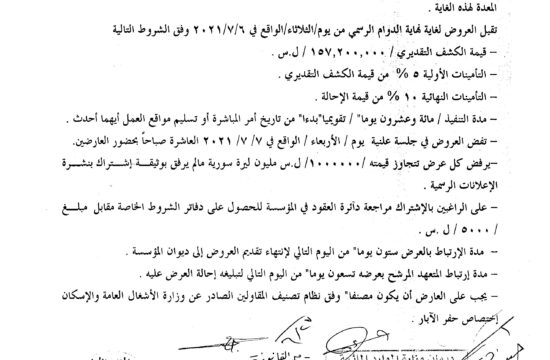 المعدة لهذه الغاية .
تقبل العروض لغاية نهاية الدوام الرسمي من يوم/الثلاثاء/الواقع في ٢٠٢١/٧/٦ وفق الشروط التالية
– قيمة الكشف التقديري / ١٥٧,٢٠٠,٠٠٠ / ل.س .
– التأمينات الأولية ٥ % من قيمة الكشف التقديري .
– التأمينات النهائية ١٠ % من قيمة الإحالة .
– مدة التنفيذ / مائة وعشرون يوما" / تقويميا"بدءا" من تاريخ أمر المباشرة أو تسليم مواقع العمل أيهما أحدث .
– تفض العروض في جلسة علنية يوم / الأربعاء / الواقع في ٧/ ٧/ ٢٠٢١ العاشرة صباحاً بحضور العارضين.
–يرفض كل عرض تتجاوز قيمته /١٠٠٠٠٠٠/ ل.س مليون ليرة سورية مالم يرفق بوثيقة إشتراك بنشرة
الإعلانات الرسمية .
– على الراغبين بالإشتراك مراجعة دائرة العقود في المؤسسة للحصول على دفاتر الشروط الخاصة مقابل مبلغ
/ ٥٠٠٠ / ل.س .
– مدة الإرتباط بالعرض ستون يوما" من اليوم التالي لإنتهاء تقديم العروض إلى ديوان المؤسسة .
– مدة إرتباط المتعهد المرشح بعرضه تسعون يوما" من اليوم التالي لتبليغه إحالة العرض عليه .
– يجب على العارض أن يكون مصنفا" وفق نظام تصنيف المقاولين الصادر عن وزارة الأشغال العامة والإسكان
إختصاص حفر الآبار .